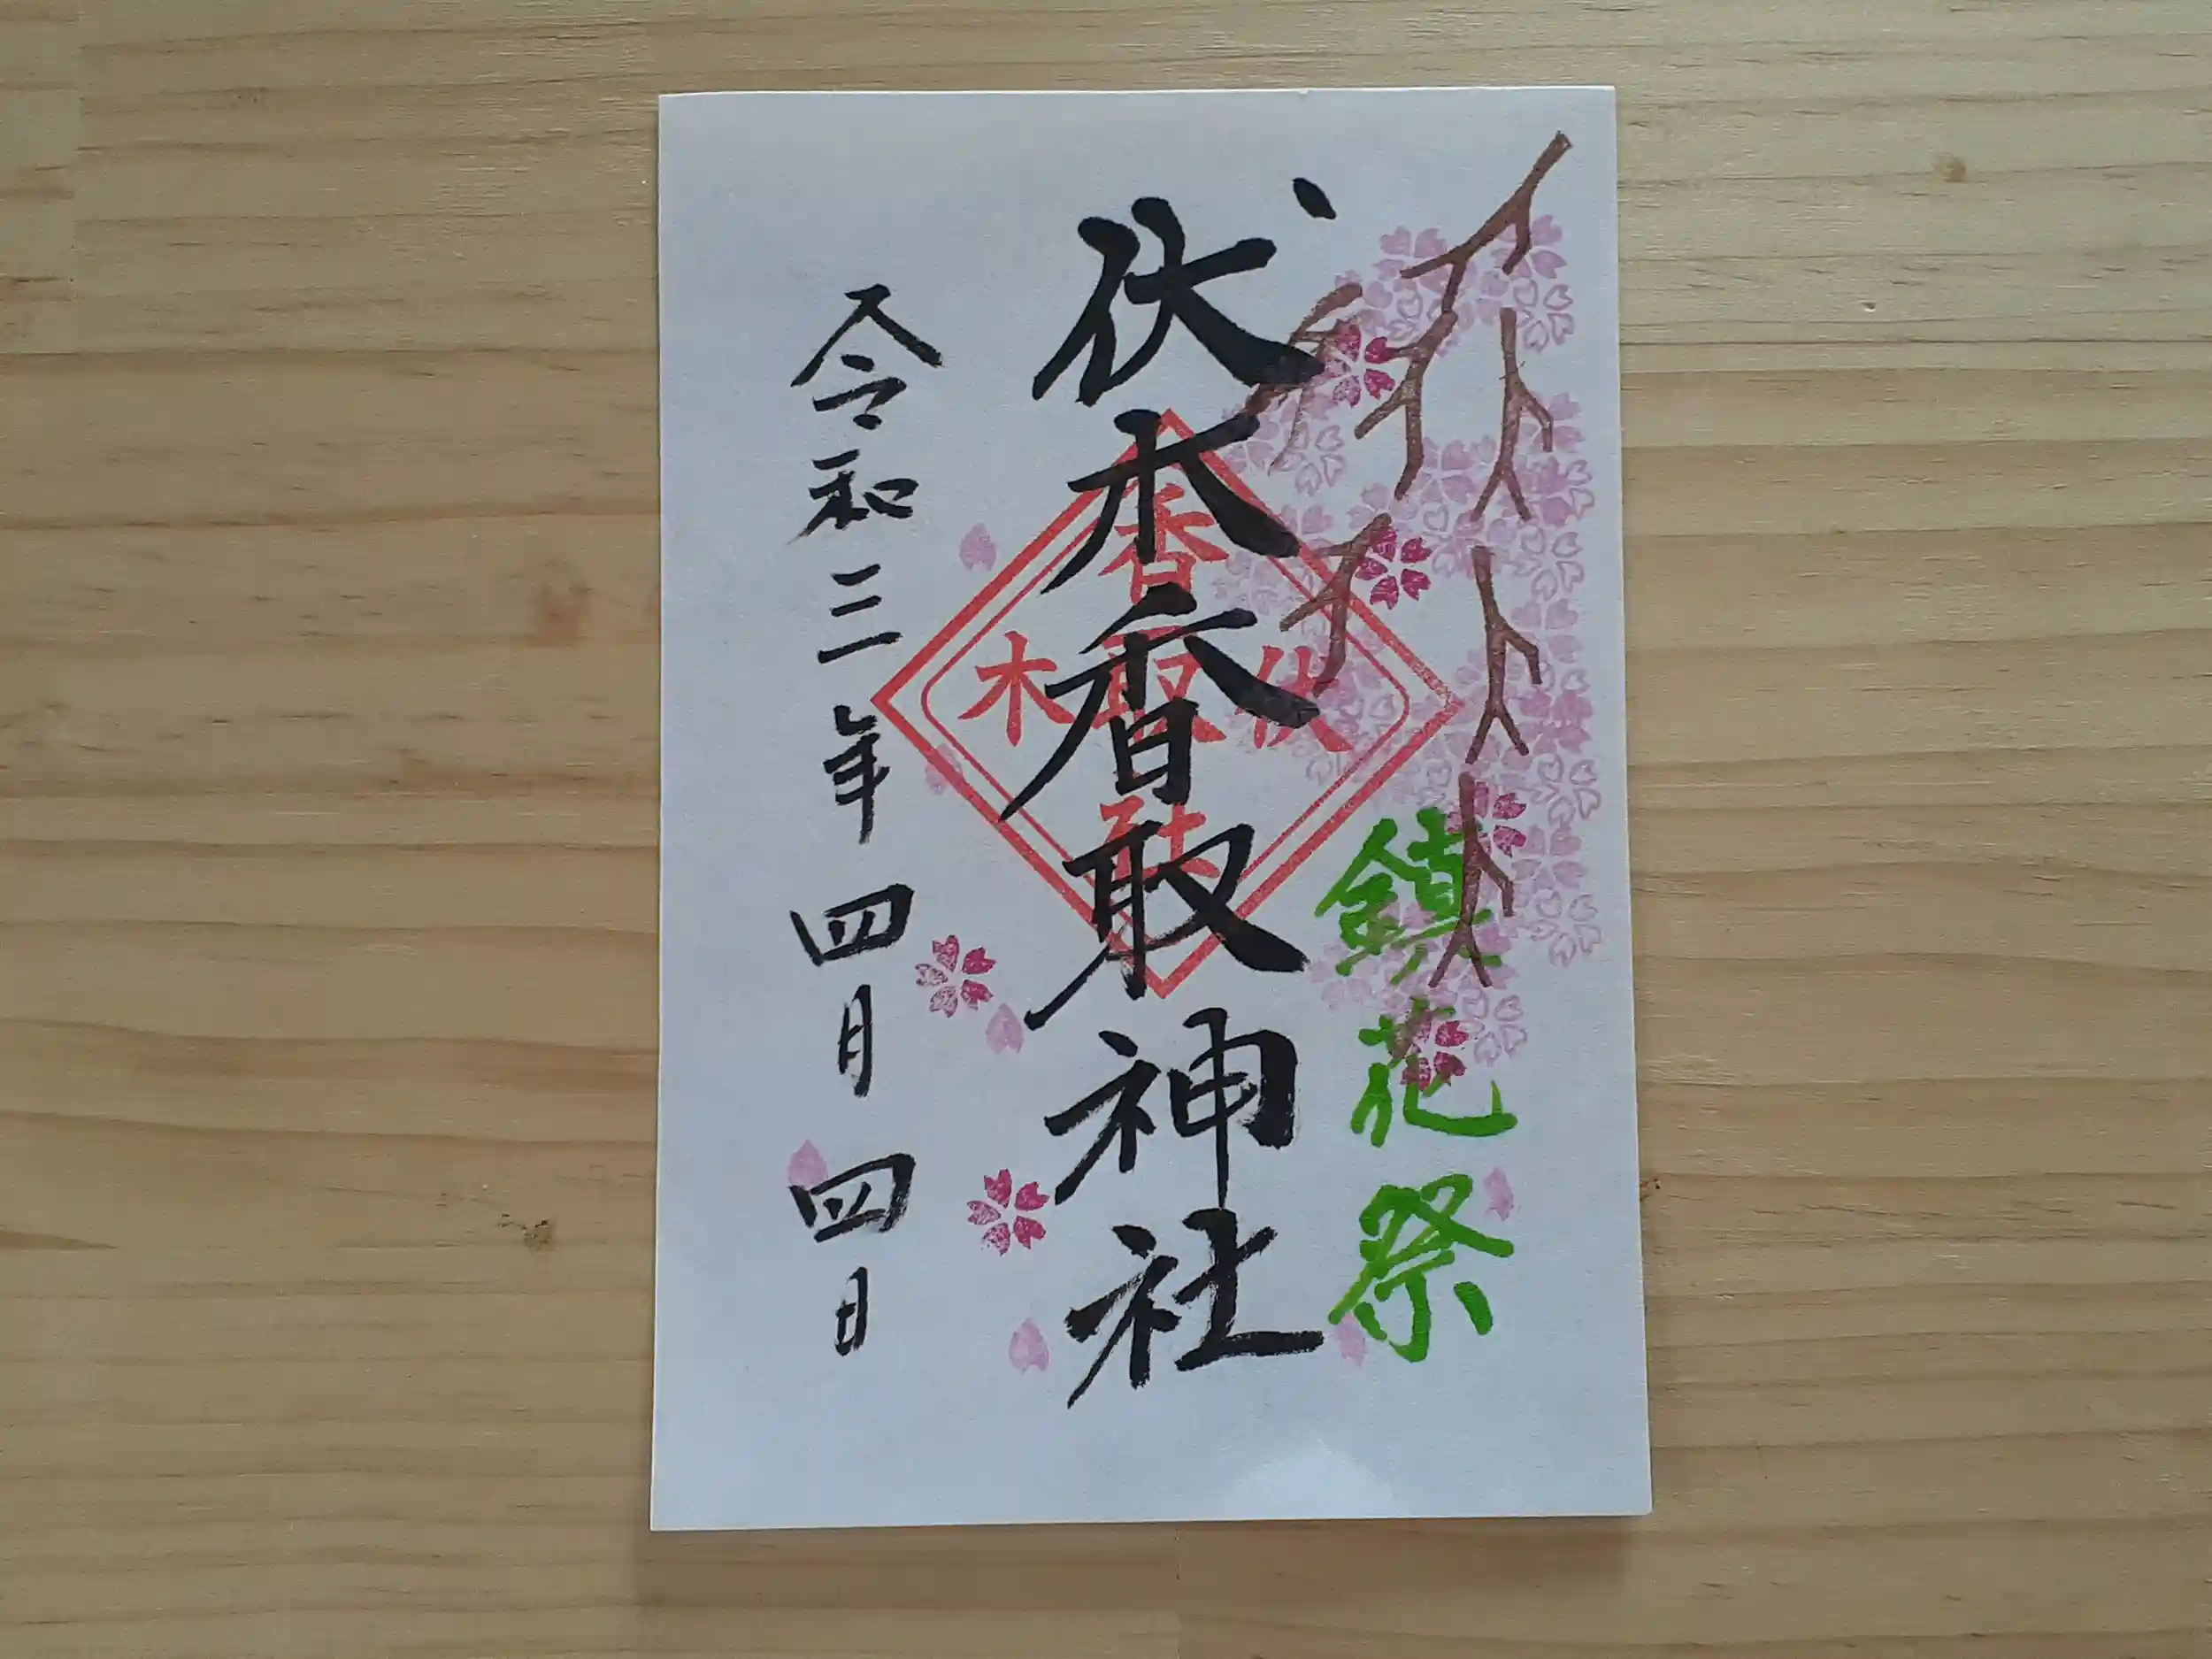 鎮花祭
伏木香取神社
香
木取伏
社
令和三年四月四日